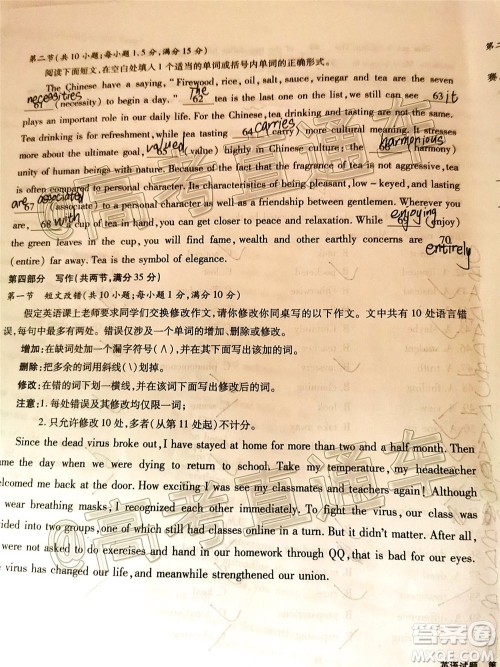 第二节(共10小题;每小题1.5分,满分15分)
阅读下面短文,在空白处填入1个适当的单词或括号内单词的正确形式。
The Chinese have a saying, "Firewood, rice, oil, salt, sauce, vinegar and tea are the seven
necessities 61 (necessity) to begin a day." The 62 tea is the last one on the list, we still can see 63 it
plays an important role in our daily life. For the Chinese, tea drinking and tasting are not the same.
Tea drinking is for refreshment, while tea tasting 64 carries (carry) more cultural meaning. It stresses
more about the ultimate goal, valued 65 (value) by Chinese culture, the 66 harmonious (harmony)
unity of human beings with nature. Because the fragrance of tea is not aggressive, tea
is often compared to personal character. Its consistent gentleness, low-keyed, and lasting
are 67 associated (associate) to personal character as well as a friendship between gentlemen. Whenever you
are, 68 with cup of tea in hand, you can get closer to peace and relaxation. While 69 enjoying (enjoy)
the green leaves in the cup, you will find worries and other earthly concerns are 70 entirely
(entire) far away. Tea is the symbol of elegance.
第四部分 写作(共两节,满分35分)
第一节 短文改错(共10小题;每小题1分,满分10分)
假定英语课上老师要求同学们交换修改作文,请你修改你同桌写的以下作文。文中共有10处语言错
误,每句中最多有两处。错误仅涉及一个单词的增加、删除或修改。
增加:在缺词处加一个漏字符号(∧),并在其下面写出该加的词。
删除:把多余的词用斜线(\)划掉。
修改:在错的词下划一横线,并在该词下面写出修改后的词。
注意:1.每处错误及其修改均仅限一词;
2.只允许修改10处,多者(从第11处起)不计分。
Since the dead virus broke out, I have stayed at home for more than two and a half month. Then
me the day when we were dying to return to school. Take my temperature, my headteacher
elcomed me back at the door. How exciting I was to see my classmates and teachers again! Although
wear breathing masks, I recognized each other immediately. To fight the virus, our class was
ided into two groups, one of which still had classes online at campus. But it didn't matter. We
were not asked to do exercises and hand in our homework through QQ, that is bad for our eyes.
e virus has changed our life, and meanwhile strengthened our union.
@高考直通车
@高考直通车
英语试题